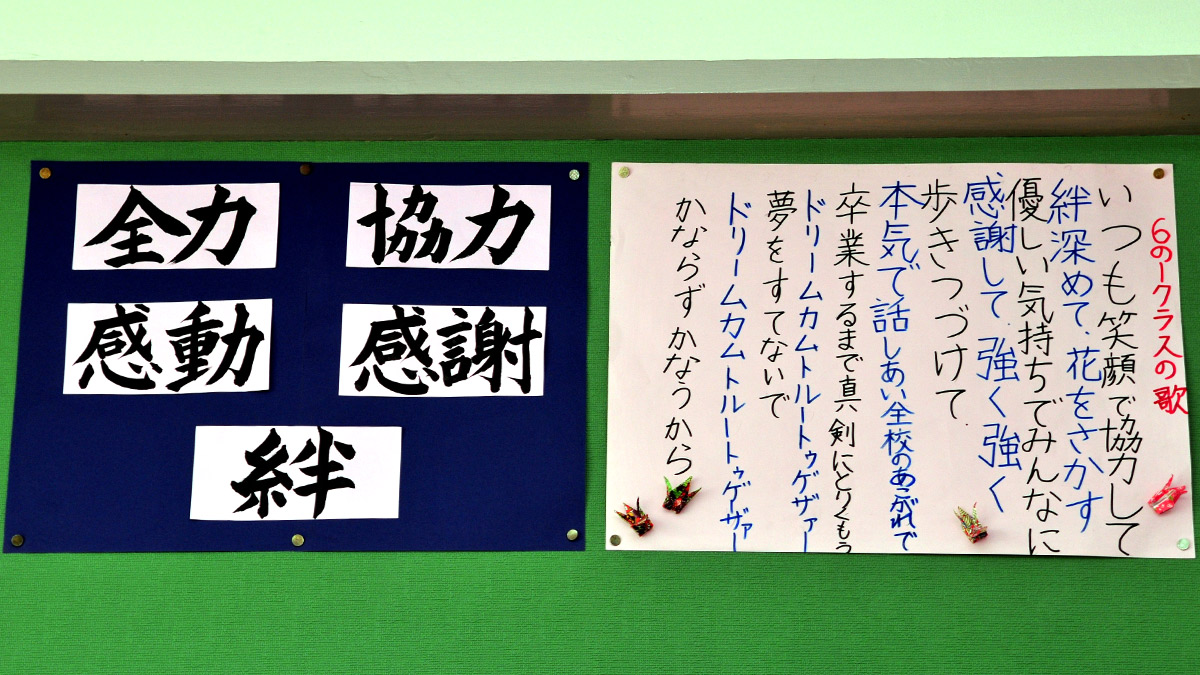 全力
協力
感動
感謝
絆
6の一クラスの歌
いつも笑顔で協力して
絆深めて、花をさかす
優しい気持ちでみんなに
感謝して、強く強く
歩きつづけて
本気で話しあい全校のあこがれで
卒業するまで真剣にとりくもう
ドリームカムトルートゥゲザァー
夢をすてないで
ドリームカムトルートゥゲーザァー
かならずかなうから